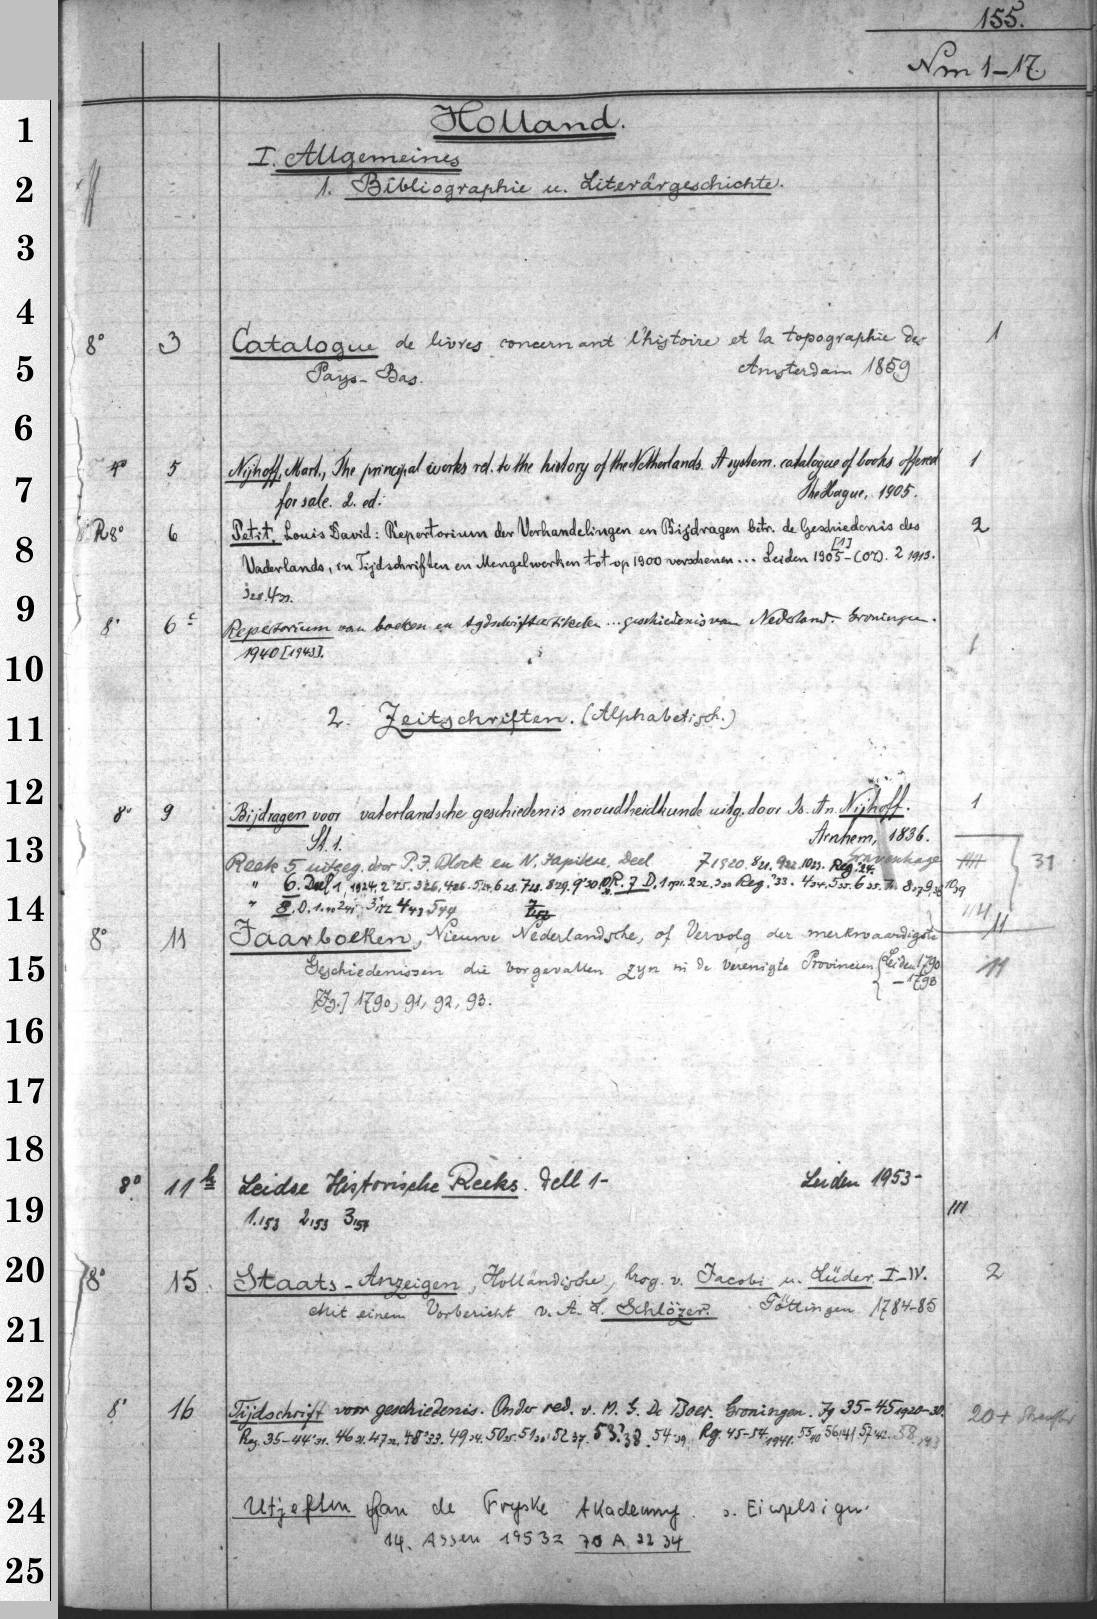 155.
Nm 1-17.
1
Holland.
I. Allgemeines
2
1. Bibliographie u. Literärgeschichte.
3
4
8° 3 Catalogue de livres concernant l'histoire et la topographie des 1
5
Pays-Bas. Amsterdam 1859
6
4° 5 Nijhoff, Mart., The principal works rel. to the history of the Netherlands. A system. catalogue of books offered 1
7
for sale. 2. ed. The Hague, 1905.
R8° 6 Petit, Louis David: Repertorium der Verhandelingen en Bijdragen betr. de Geschiedenis des 2
8
Vaderlands, in Tijdschriften en Mengelwerken tot op 1900 verschenen ... Leiden 1905-(07). 2 1913.
[1]
9
8° 6c Repertorium van boeken en tijdschriftartikelen ... geschiedenis van Nederland. Groningen. 1
10
1940 [1943].
11
2. Zeitschriften. (Alphabetisch.)
12
8° 9 Bijdragen voor vaterlandsche geschiedenis en oudheidkunde uitg. door Is. An. Nijhoff. 1
St. 1. Arnhem, 1836.
13
Reek 5 uitgeg. door P. J. Blok en N. Japikse, Deel 7 1920. 8 21. 9 22. 10 23. Reg. 24. Gravenhage 31
" 6. Deel 1, 1924. 2 '25. 3 26. 4 26. 5 27. 6 28. 7 28. 8 29. 9 '30. R. 7 D. 1 31. 2 32. 3 33 Reg. '33. 4 34. 5 35. 6 35.
14
" 8. D. 1. 4 43 5 44
8° 11 Jaarboeken, Nieuwe Nederlandsche, of Vervolg der merkwaardigste 11
15
Geschiedenissen die voorgevallen zyn in de Verenigte Provincien Leiden 1790
- 1793
[Jg.] 1790, 91, 92, 93.
16
17
18
8° 11b Leidse Historische Reeks. Dell 1- Leiden 1953-
19
1.153 2.153 3.157 III
20
8° 15. Staats-Anzeigen, Holländische, hrsg. v. Jacobi u. Lüder. I-IV. 2
Mit einem Vorbericht v. A. L. Schlözer. Göttingen 1784-85
21
22
8° 16 Tijdschrift voor geschiedenis. Onder red. v. M. G. De Boer. Groningen. Jg 35-45 1920-30. 20+
23
Reg. 35-44 '31. 46 31. 47 32. 48 '33. 49 34. 50 35. 51 36. 52 37. 53 '38. 54 '39. Rg. 45-54 1941. 55 40 56 41 57 42. 58 143
24
Utjeften fan de Fryske Akademy.
14. Assen 1953 70 A 3234
25